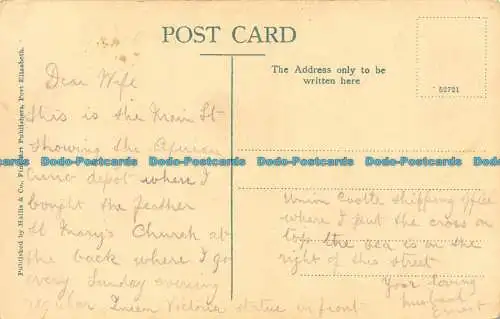 POST CARD
The Address only to be
written here
62721
Published by Hallis & Co., Fine Art Publishers, Port Elizabeth.
Dear Wife
this is the Main St
showing the African
Curio depot where I
bought the feather
St Mary's Church at
the back where I go
every Sunday evening
regular Queen Victoria statue in front
Union Castle shipping office
where I put the cross on
top the sea is on the
right of this street
Your loving
husband
Ernest
Dodo-Postcards Dodo-Postcards Dodo-Postcards Dodo-Postcards Dodo-Postcards